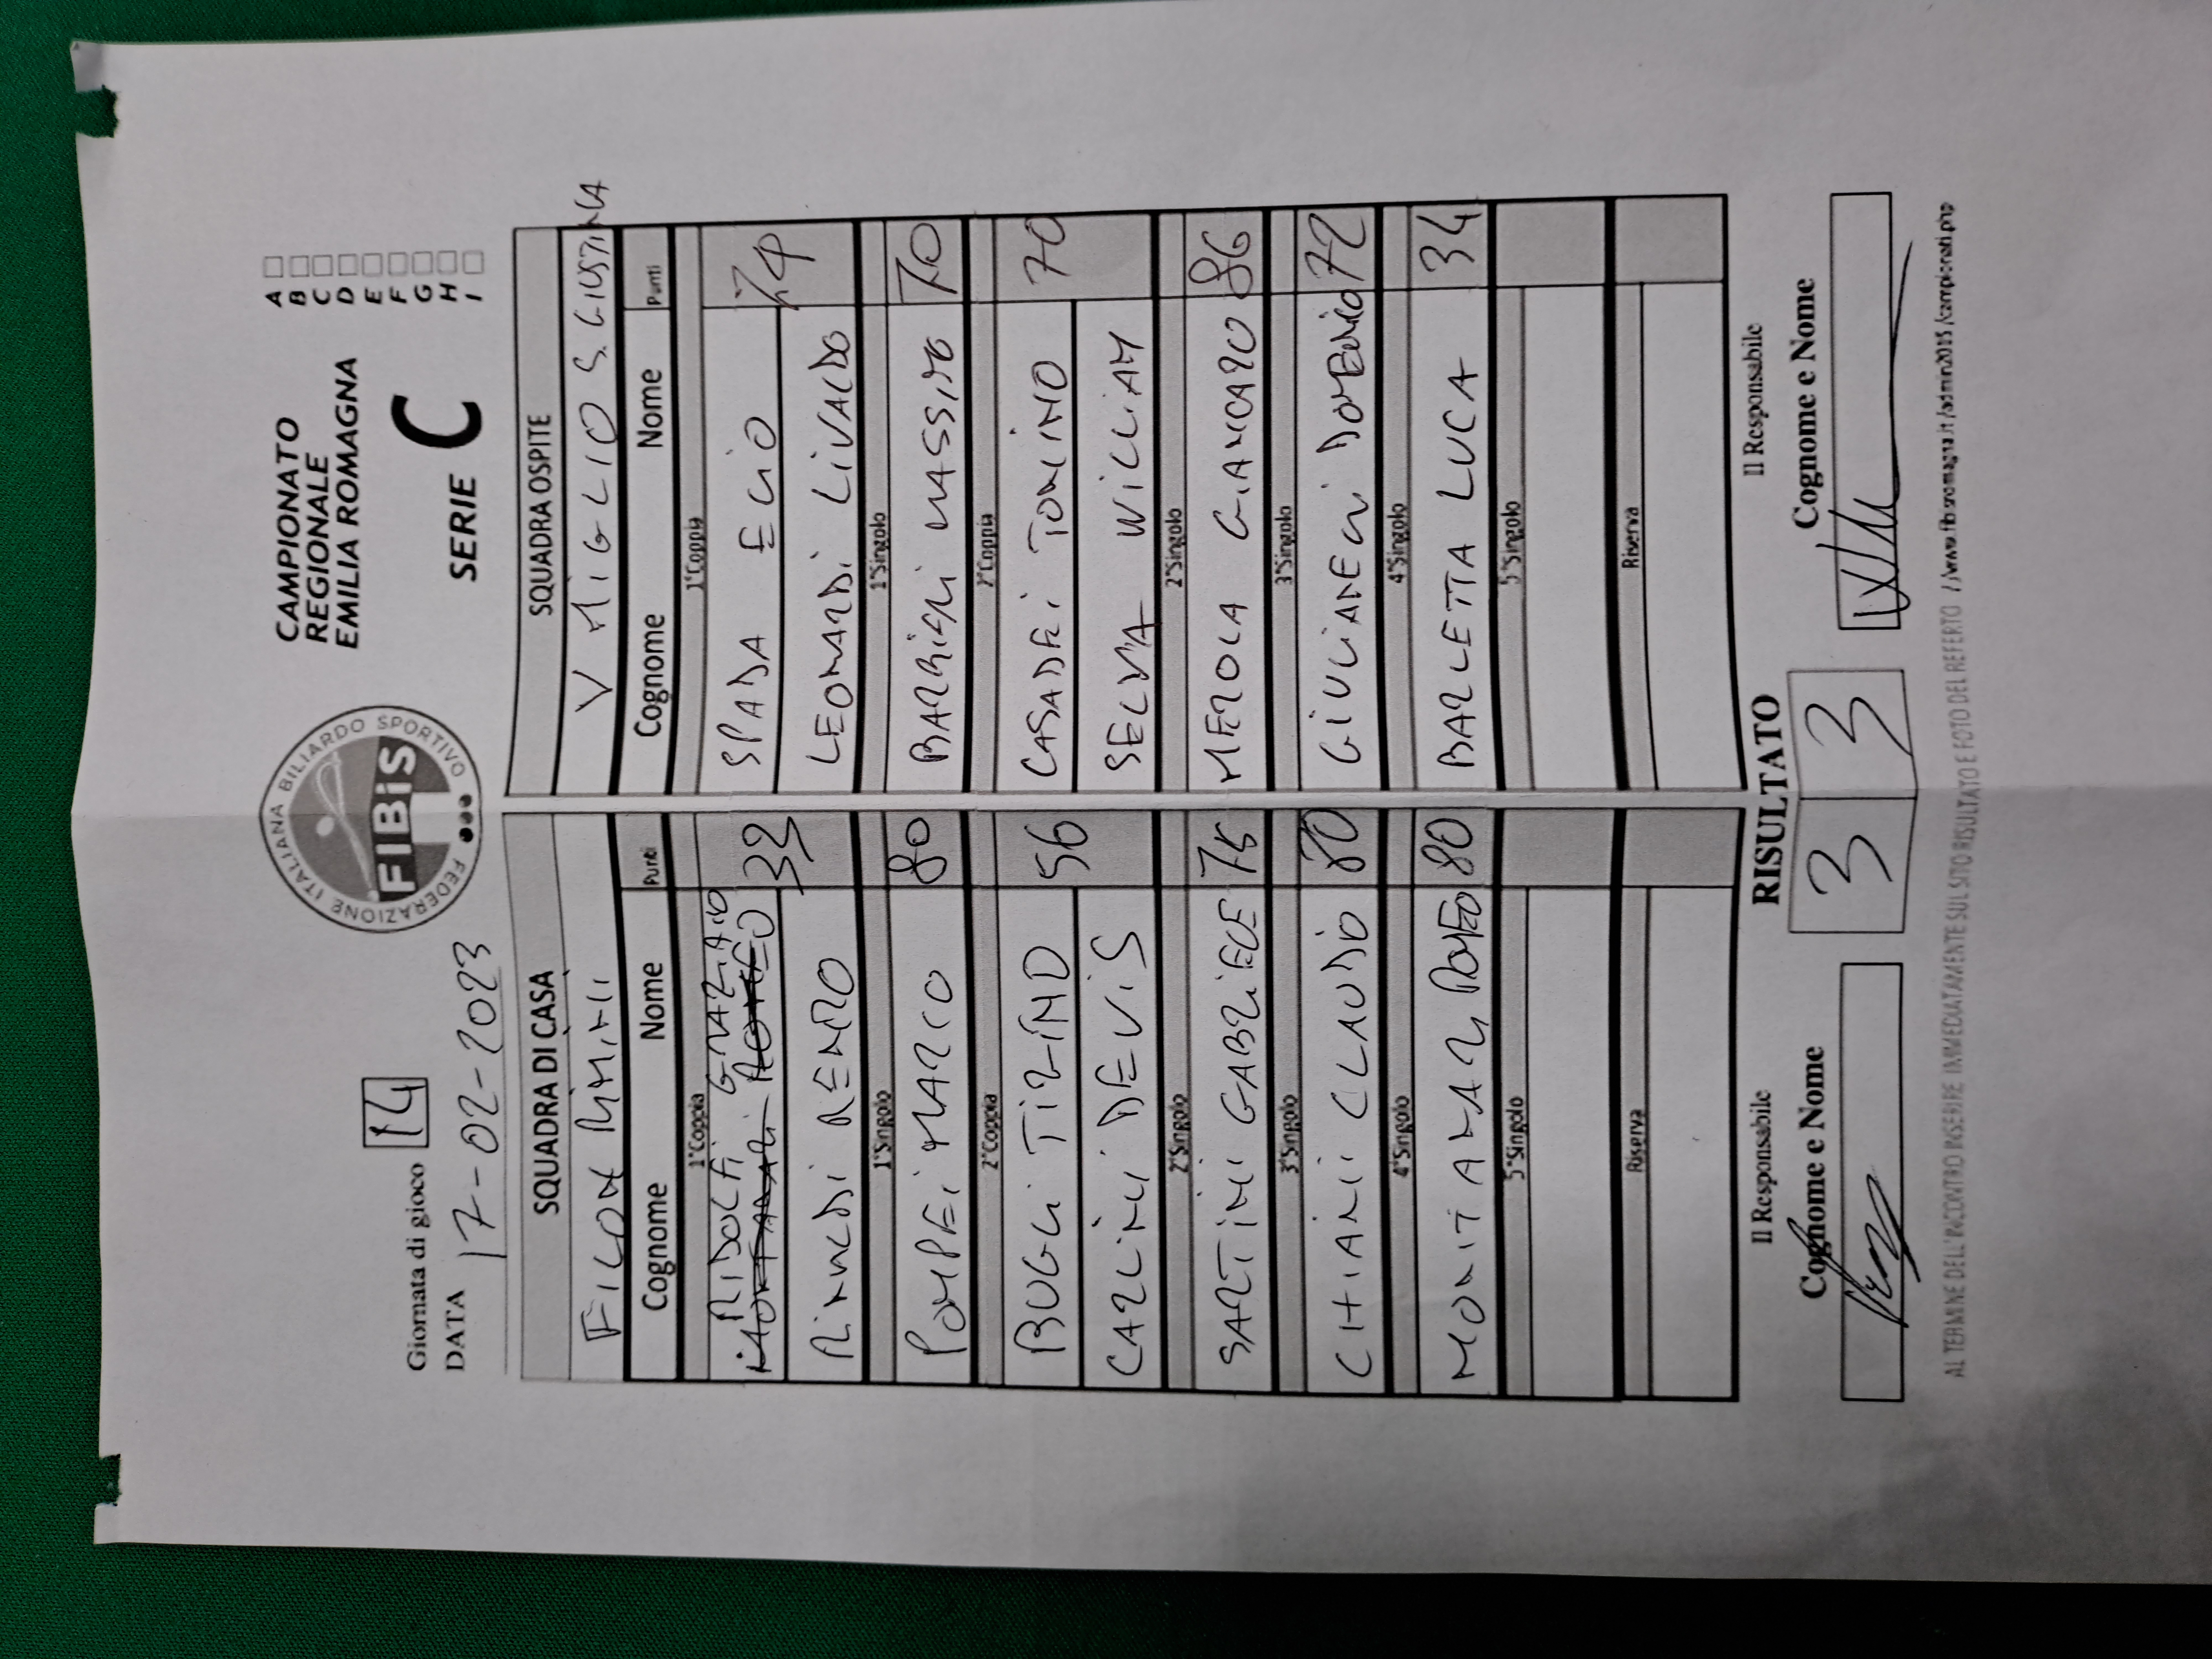 Giornata di gioco 14
DATA 17-02-2023
FEDERAZIONE ITALIANA BILIARDO SPORTIVO
FIBiS
CAMPIONATO
REGIONALE
EMILIA ROMAGNA
SERIE C
A
B
C
D
E
F
G
H
I
SQUADRA DI CASA SQUADRA OSPITE
RIMINI V MIGLIO S. GIUSTINA
Cognome Nome Punti Cognome Nome Punti
1°Coppia 1°Coppia
RIDOLFI GRAZIANO
MONTANARI ROMEO 39 SPADA ELIO 74
RINALDI RENATO LEONARDI LIVALDO
1°Singolo 1°Singolo
POMPEI MARCO 80 MASSIMO 70
2°Coppia 2°Coppia
BUGLI TIZIANO 56 CASADEI TONINO 70
CARLINI DEVIS SELVA WILLIAM
2°Singolo 2°Singolo
SARTINI GABRIELE 75 MEROLA GIANCARLO 86
3°Singolo 3°Singolo
CHIARI CLAUDIO 80 GIULIANELLI DOMENICO 72
4°Singolo 4°Singolo
MONTANARI ROMEO 80 BARLETTA LUCA 34
5°Singolo 5°Singolo
Riserva Riserva
Il Responsabile RISULTATO Il Responsabile
Cognome e Nome 3 3 Cognome e Nome
AL TERMINE DELL'INCONTRO INSERIRE IMMEDIATAMENTE SUL SITO RISULTATO E FOTO DEL REFERTO //www.fibisromagna.it/admin2015/campionati.php